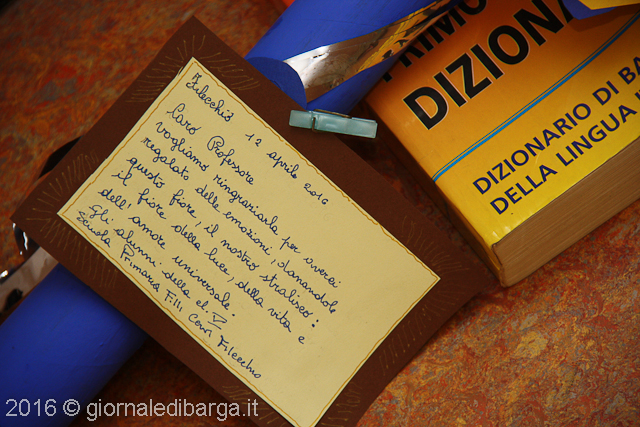 Filecchio 12 aprile 2016
Caro Professore
vogliamo ringraziarla per averci
regalato delle emozioni, donandole
questo fiore, il nostro stralisco:
il fiore della luce, della vita e
dell' amore universale.
Gli alunni della cl. V
Scuola Primaria F.lli Cervi Filecchio
PRIMO
DIZIONA
DIZIONARIO DI BA
DELLA LINGUA
2016 © giornaledibarga.it